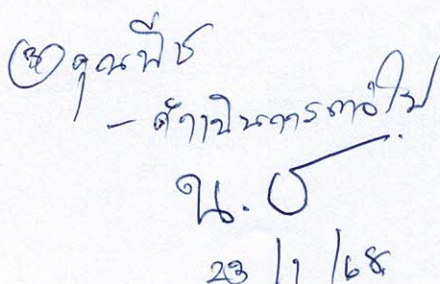 ③ คุณพีช
- ดำเนินการต่อไป
น.
23/1/68